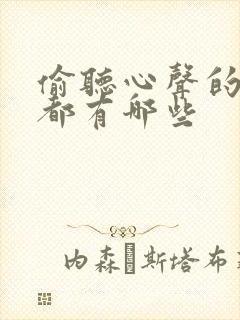 偷聽心聲的
都有哪些
内森·斯塔布